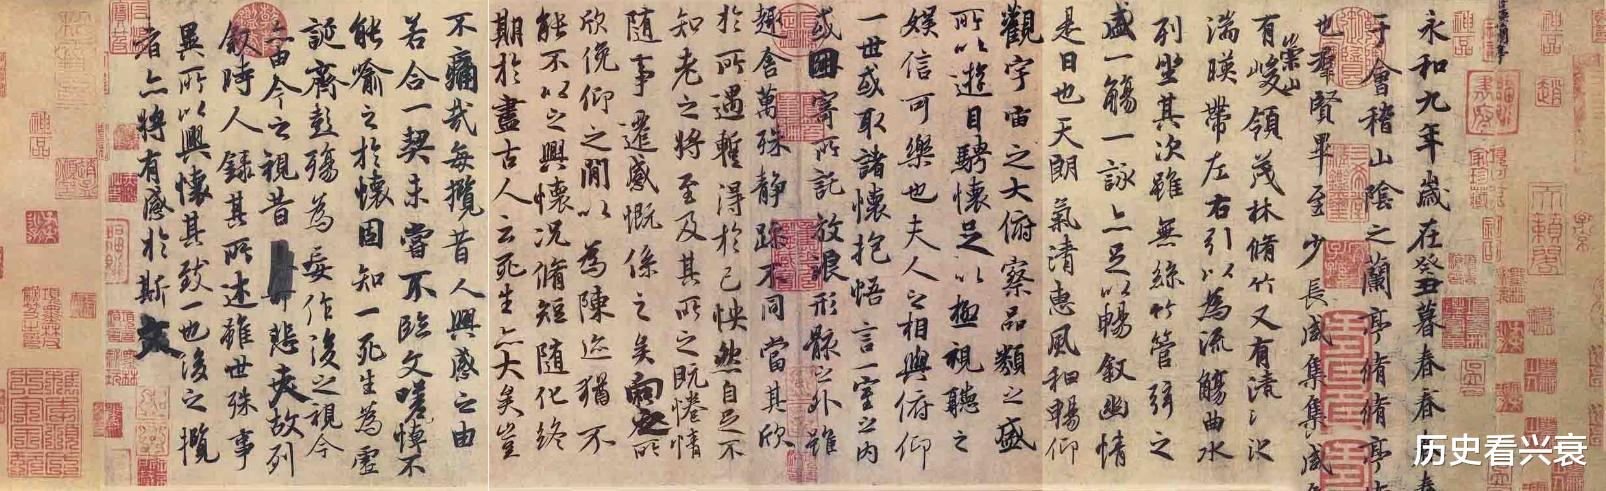 永和九年歲在癸丑暮春春
于會稽山陰之蘭亭脩脩亭
也羣賢畢至少長咸集集咸
有崇山峻領茂林脩竹又有清
湍暎帶左右引以為流觴曲水
列坐其次雖無絲竹管弦之
盛一觴一詠亦足以暢敘幽情
是日也天朗氣清惠風和暢仰
觀宇宙之大俯察品類之盛
所以遊目騁懷足以極視聽之
娛信可樂也夫人之相與俯仰
一世或取諸懷抱悟言一室之內
或因寄所託放浪形骸之外雖
趣舍萬殊靜躁不同當其欣
於所遇暫得於己怏然自足不
知老之將至及其所之既惓情
隨事遷感慨係之矣向之所
欣俛仰之閒以為陳迹猶不
能不以之興懷況脩短隨化終
期於盡古人云死生亦大矣豈
不痛哉每攬昔人興感之由
若合一契未嘗不臨文嗟悼不
能喻之於懷固知一死生為虛
誕齊彭殤為妄作後之視今
亦由今之視昔悲夫故列
敘時人錄其所述雖世殊事
異所以興懷其致一也後之攬
者亦將有感於斯文
历史看兴衰